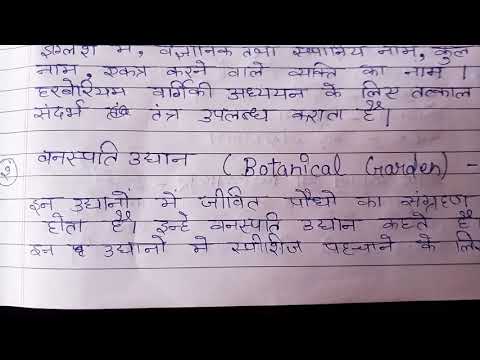 इंग्लिश में, वैज्ञानिक तथा स्थानिय नाम, कुल
नाम, एकत्र करने वाले व्यक्ति का नाम।
हरबेरियम वर्गिकी अध्ययन के लिए तत्काल
संदर्भ तंत्र उपलब्ध कराता है।
वनस्पति उद्यान (Botanical Garden) -
इन उद्यानों में जीवित पौधो का संग्रहण
होता है। इन्हे वनस्पति उद्यान कहते है।
इन उद्यानो मे स्पीशिज पहचाने के लिए